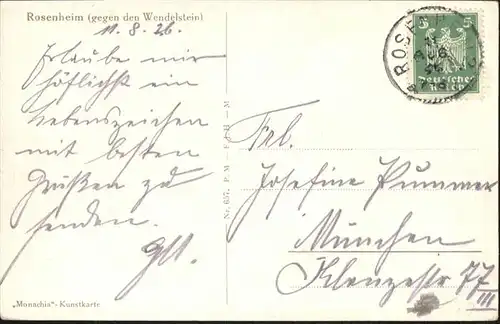 Rosenheim (gegen den Wendelstein)
11.8.26.
Erlaube mir
höflichst ein
Lebenszeichen
mit besten
Grüßen zu
senden.
„Monachia"-Kunstkarte
Nr. 657.
ROSENH
5 5
Deutsches
Reich
Frl.
Josefine Pummer
München
Klenzestr 77
III